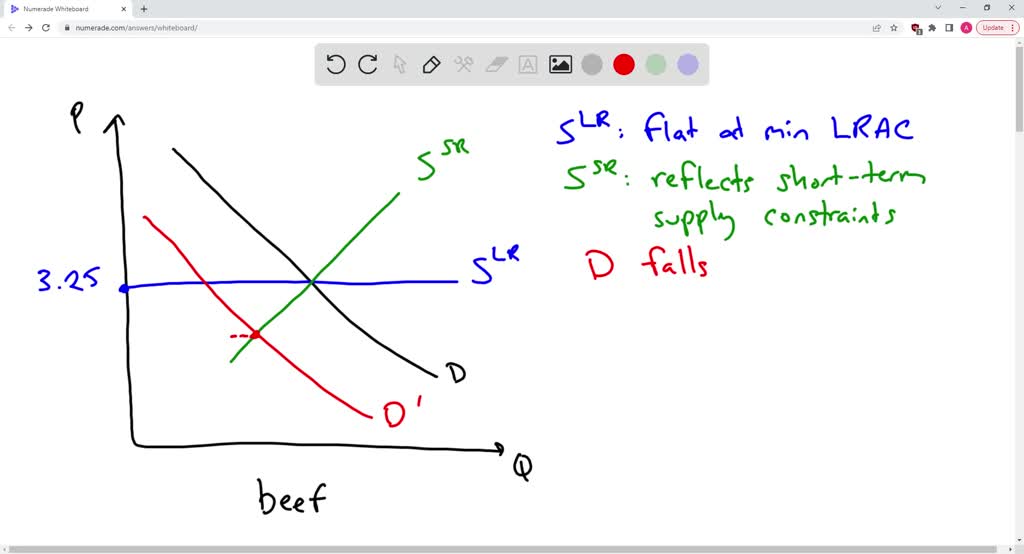 Numerade Whiteboard
numerade.com/answers/whiteboard/
A
Update
A
P
S^SR
3.25
S^LR
D
D'
Q
beef
S^LR: flat at min LRAC
S^SR: reflects short-term
supply constraints
D falls